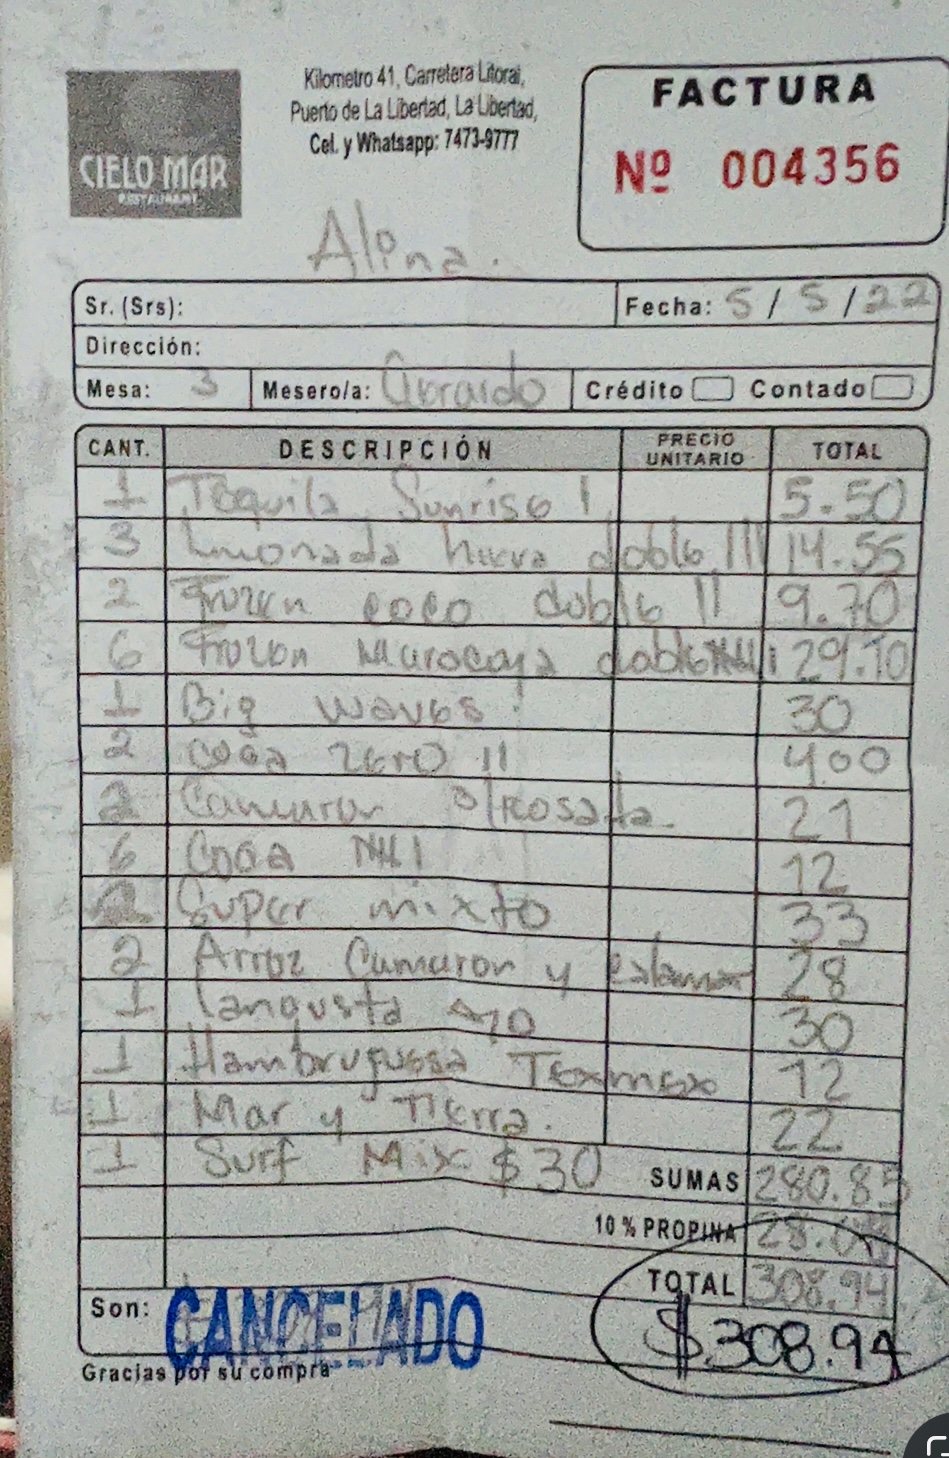 CIELO MAR
RESTAURANT
Kilometro 41, Carretera Litoral,
Puerto de La Libertad, La Libertad,
Cel. y Whatsapp: 7473-9777
FACTURA
Nº 004356
Alina.
Sr. (Srs): Fecha: 5/5/22
Dirección:
Mesa: 3 Mesero/a: Crédito Contado
CANT. DESCRIPCIÓN PRECIO UNITARIO TOTAL
1 Tequila Sunrise 5.50
3 Limonada doble 14.55
2 Frozen coco doble 9.70
6 Frozen doble 29.10
1 Big waves 30
2 Coca zero 4.00
2 21
6 Coca 12
Super mixto 33
2 Arroz Camaron y 28
1 langosta 30
1 Hambruguesa Texmex 12
1 Mar y Tierra. 22
1 Surf Mix $30
SUMAS 280.85
10 % PROPINA
TOTAL 308.94
Son: CANCELADO
$308.94
Gracias por su compra